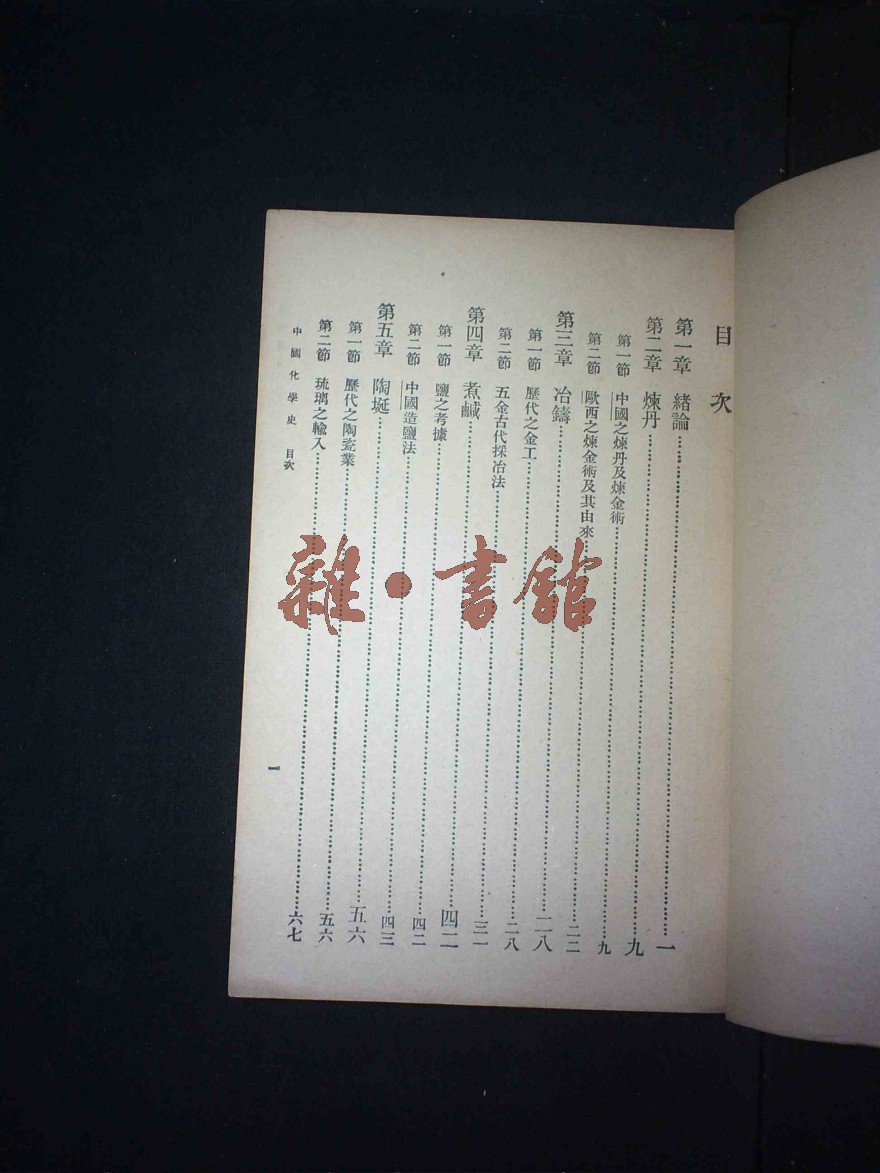 目次
第一章 緒論 一
第二章 煉丹 九
第一節 中國之煉丹及煉金術 九
第二節 歐西之煉金術及其由來 二二
第三章 冶鑄 二八
第一節 歷代之金工 二八
第二節 五金古代採冶法 三一
第四章 煮鹹 四二
第一節 鹽之考據 四二
第二節 中國造鹽法 四三
第五章 陶埏 五六
第一節 歷代之陶瓷業 五六
第二節 琉璃之輸入 六七
中國化學史 目次
一
雜·書館